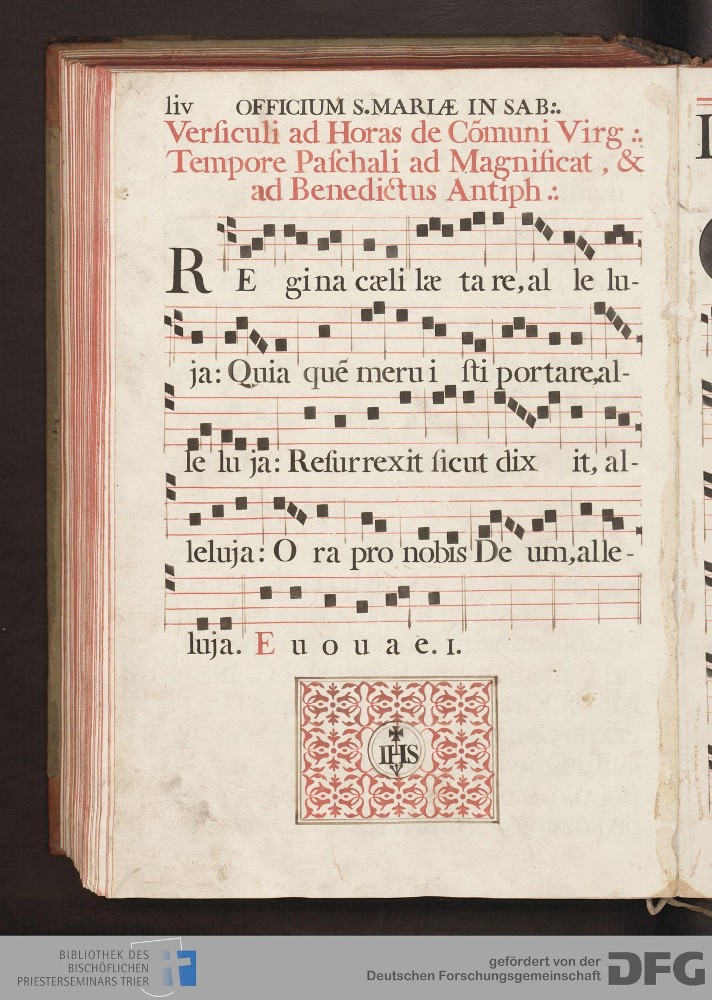 liv OFFICIUM S.MARIÆ IN SAB:.
Verſiculi ad Horas de Cõmuni Virg :.
Tempore Paſchali ad Magnificat , &
ad Benedictus Antiph .:
R E gina cæli læ ta re, al le lu-
ja: Quia quẽ meru i ſti portare, al-
le lu ja: Reſurrexit ſicut dix it, al-
leluja: O ra pro nobis De um, alle-
luja. E u o u a e. 1.
IHS
BIBLIOTHEK DES
BISCHÖFLICHEN
PRIESTERSEMINARS TRIER
gefördert von der
Deutschen Forschungsgemeinschaft
DFG